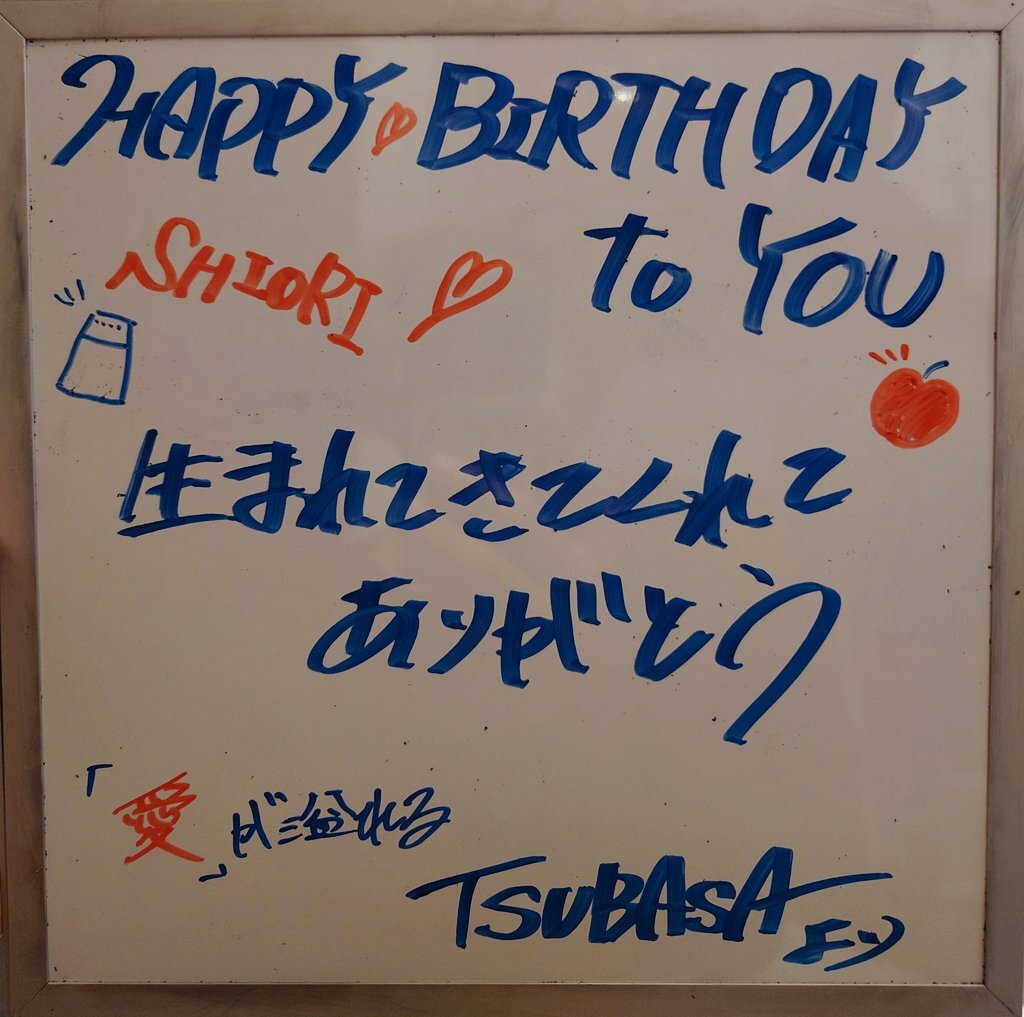 HAPPY BIRTHDAY
to YOU
SHIORI
生まれてきてくれて
ありがとう
「愛」が溢れる
TSUBASAより